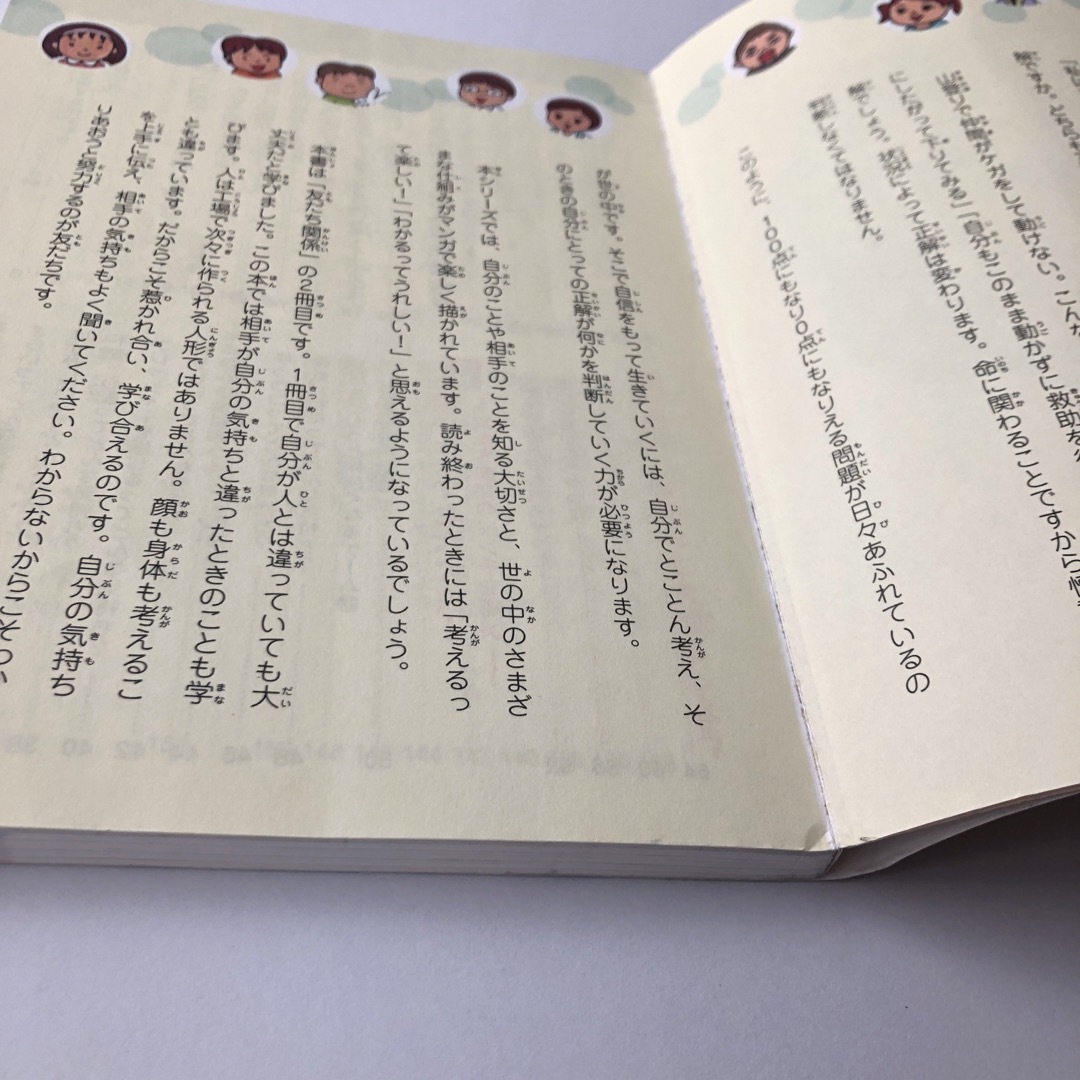 解ですか。
山登りで仲間がケガをして動けない。
にしたがって下りてみる」「自分もこのまま動かずに救助を
解でしょう。状況によって正解は変わります。命に関わることですから慎
判断しなくてはなりません。
このように、100点にもなり0点にもなりえる問題が日々あふれているの
が世の中です。そこで自信をもって生きていくには、自分でとことん考え、そ
のときの自分にとっての正解が何かを判断していく力が必要になります。
本シリーズでは、自分のことや相手のことを知る大切さと、世の中のさまざ
まな仕組みがマンガで楽しく描かれています。読み終わったときには「考えるっ
て楽しい!」「わかるってうれしい!」と思えるようになっているでしょう。
本書は「友だち関係」の2冊目です。1冊目で自分が人とは違っていても大
丈夫だと学びました。この本では相手が自分の気持ちと違ったときのことも学
びます。人は工場で次々に作られる人形ではありません。顔も身体も考えるこ
とも違っています。だからこそ惹かれ合い、学び合えるのです。自分の気持ち
を上手に伝え、相手の気持ちもよく聞いてください。わからないからこそわか
りあおうと努力するのが友だちです。